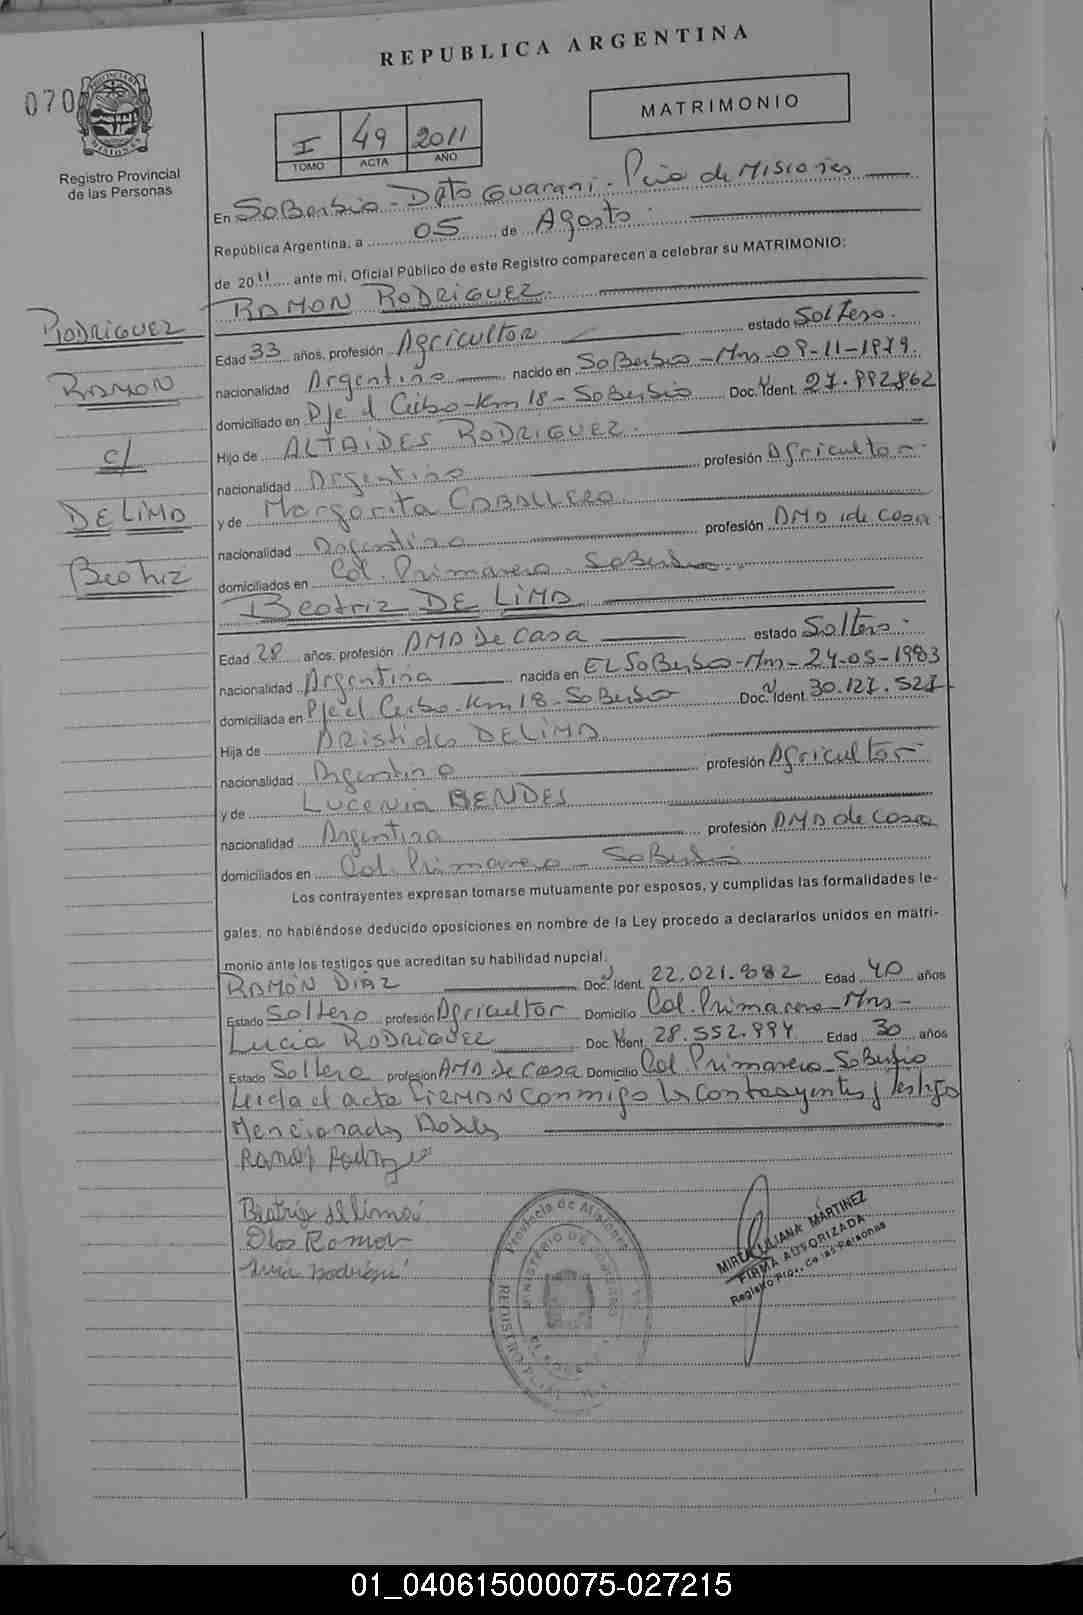 REPUBLICA ARGENTINA
070
PROVINCIA DE MISIONES
Registro Provincial
de las Personas
I 49 2011
TOMO ACTA AÑO
MATRIMONIO
En Soberbio - Dpto Guarani - Pcia de Misiones
República Argentina, a 05 de Agosto.
de 20 11 ante mi, Oficial Público de este Registro comparecen a celebrar su MATRIMONIO:
RAMON RODRIGUEZ.
Edad 33 años, profesión Agricultor estado Soltero.
nacionalidad Argentino nacido en Soberbio - Mns - 09-11-1979.
domiciliado en Pje el Ceibo - Km 18 - Soberbio Doc. Ident. 27.992862
Hijo de ALTAIDES RODRIGUEZ.
nacionalidad Argentino profesión Agricultor.
y de Margarita CABALLERO
nacionalidad Argentina profesión AMA de casa
domiciliados en Col. Primavera - Soberbio.
Beatriz DE LIMA
Edad 28 años, profesión AMA De Casa estado Soltera.
nacionalidad Argentina nacida en EL Soberbio - Mns - 24-05-1983
domiciliada en Pje el Ceibo - Km 18 - Soberbio Doc. Ident. 30.127.527
Hija de ARISTIDES DELIMA
nacionalidad Argentino profesión Agricultor.
y de Lucenia BENDES
nacionalidad Argentina profesión AMA de Casa
domiciliados en Col. Primavera - Soberbio
Los contrayentes expresan tomarse mutuamente por esposos, y cumplidas las formalidades le-
gales, no habiéndose deducido oposiciones en nombre de la Ley procedo a declararlos unidos en matri-
monio ante los testigos que acreditan su habilidad nupcial.
RAMÓN DIAZ Doc. Ident. 22.021.982 Edad 40 años
Estado Soltero profesión Agricultor Domicilio Col. Primavera - Mns -
Lucia RODRIGUEZ Doc. Ident. 28.552.994 Edad 30 años
Estado Soltera profesión AMA de Casa Domicilio Col. Primavera - Soberbio
Leida el acta FIRMAN conmigo los contrayentes y testigos
Mencionados
Ramon Rodriguez
Beatriz de lima
Dias Ramon
Lucia Rodriguez
RODRIGUEZ
RAMON
c/
DE LIMA
Beatriz
Provincia de Misiones
MINISTERIO DE
MIRTA LILIANA MARTINEZ
FIRMA AUTORIZADA
Registro Prov. de las Personas
01_040615000075-027215